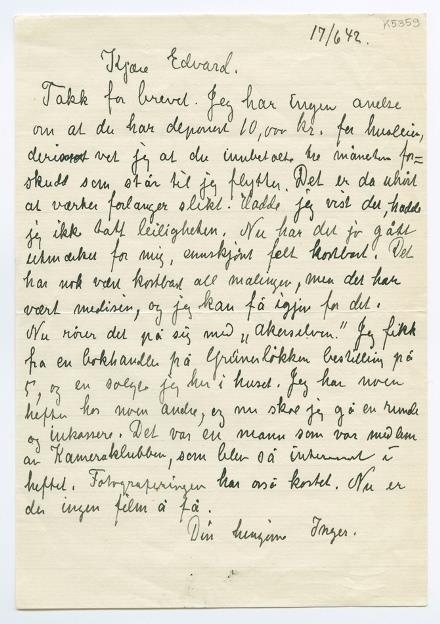 K5359
17/6 42.
Kjære Edvard.
Takk for brevet. Jeg har ingen anelse
om at du har deponert 10,000 kr. for husleien,
derimot vet jeg at du innbetalte tre måneters for=
skudd som står til jeg flytter. Det er da uhørt
at værker forlanger slikt. Hadde jeg vist det, hadde
jeg ikke tatt leiligheten. Nu har det jo gått
utmærket for mig, ennskjønt felt kostbart. Det
har nok vært kostbart all malingen, men det har
vært medisin, og jeg kan få igjen for det.
Nu rører det på sig med "Akerselven." Jeg fikk
fra en bokhandler på Grünerløkken bestilling på
5, og en solgte jeg her i huset. Jeg har noen
hefter hos noen andre, og nu skal jeg gå en runde
og inkassere. Det var en mann som var medlem
av Kameraklubben, som blev så interessert i
heftet. Fotograferingen har også kostet. Nu er
der ingen film å få.
Din hengivne Inger.